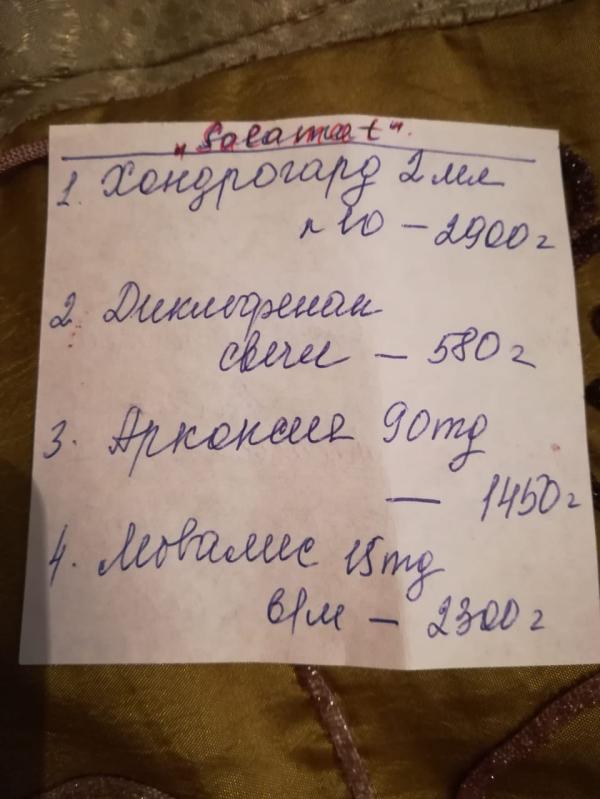 "Salamat".
1. Хондрогард 2 мл
n 10 – 2900 г
2. Диклофенак
свечи – 580 г
3. Аркоксиа 90mg
– 1450 г
4. Мовалис 15mg
в/м – 2300 г